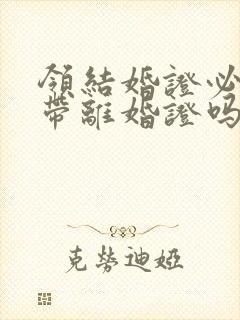 領結婚證必
帶離婚證嗎
克勞迪婭